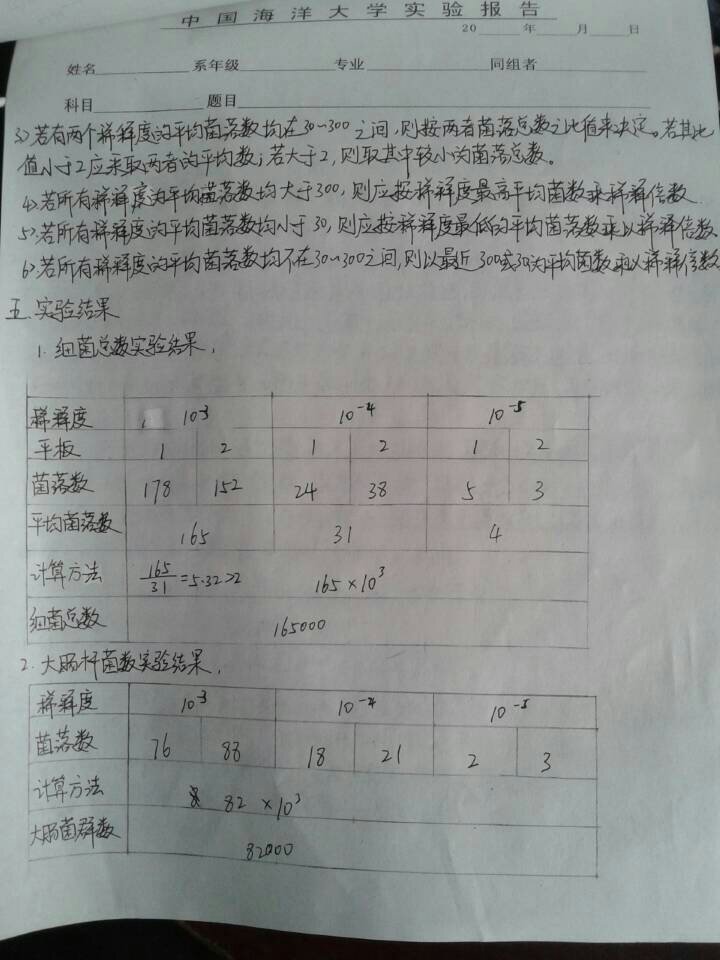 中国海洋大学实验报告
20 年 月 日
姓名 系年级 专业 同组者
科目 题目
3>若有两个稀释度的平均菌落数均在30~300之间,则按两者菌落总数之比值来决定。若其比
值小于2应采取两者的平均数;若大于2,则取其中较小的菌落总数。
4>若所有稀释度的平均菌落数均大于300,则应按稀释度最高平均菌数乘稀释倍数
5>若所有稀释度的平均菌落数均小于30,则应按稀释度最低的平均菌落数乘以稀释倍数
6>若所有稀释度的平均菌落数均不在30~300之间,则以最近300或30的平均菌数乘以稀释倍数
五.实验结果
1.细菌总数实验结果,
稀释度 10⁻³ 10⁻⁴ 10⁻⁵
平板 1 2 1 2 1 2
菌落数 178 152 24 38 5 3
平均菌落数 165 31 4
计算方法 165/31=5.32>2 165×10³
细菌总数 165000
2.大肠杆菌数实验结果,
稀释度 10⁻³ 10⁻⁴ 10⁻⁵
菌落数 76 88 18 21 2 3
计算方法 82×10³
大肠菌群数 82000